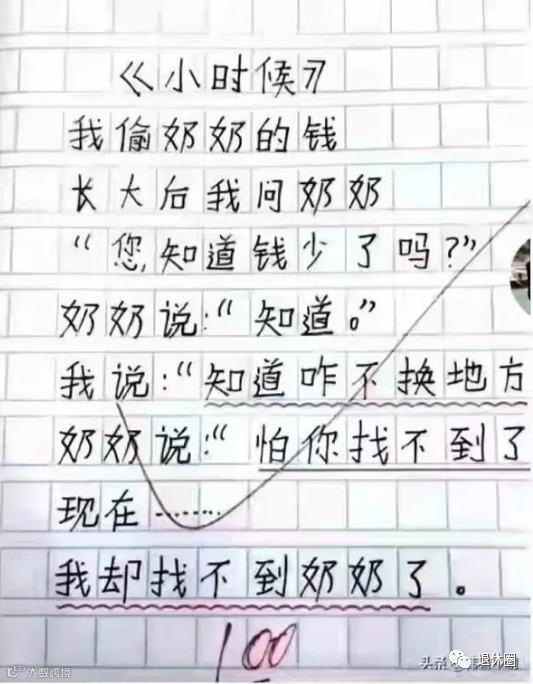 《小时候》
我偷奶奶的钱
长大后我问奶奶
“您知道钱少了吗？”
奶奶说：“知道。”
我说：“知道咋不换地方
奶奶说：“怕你找不到了
现在………
我却找不到奶奶了。
100
头条
退休圈
大数跨境